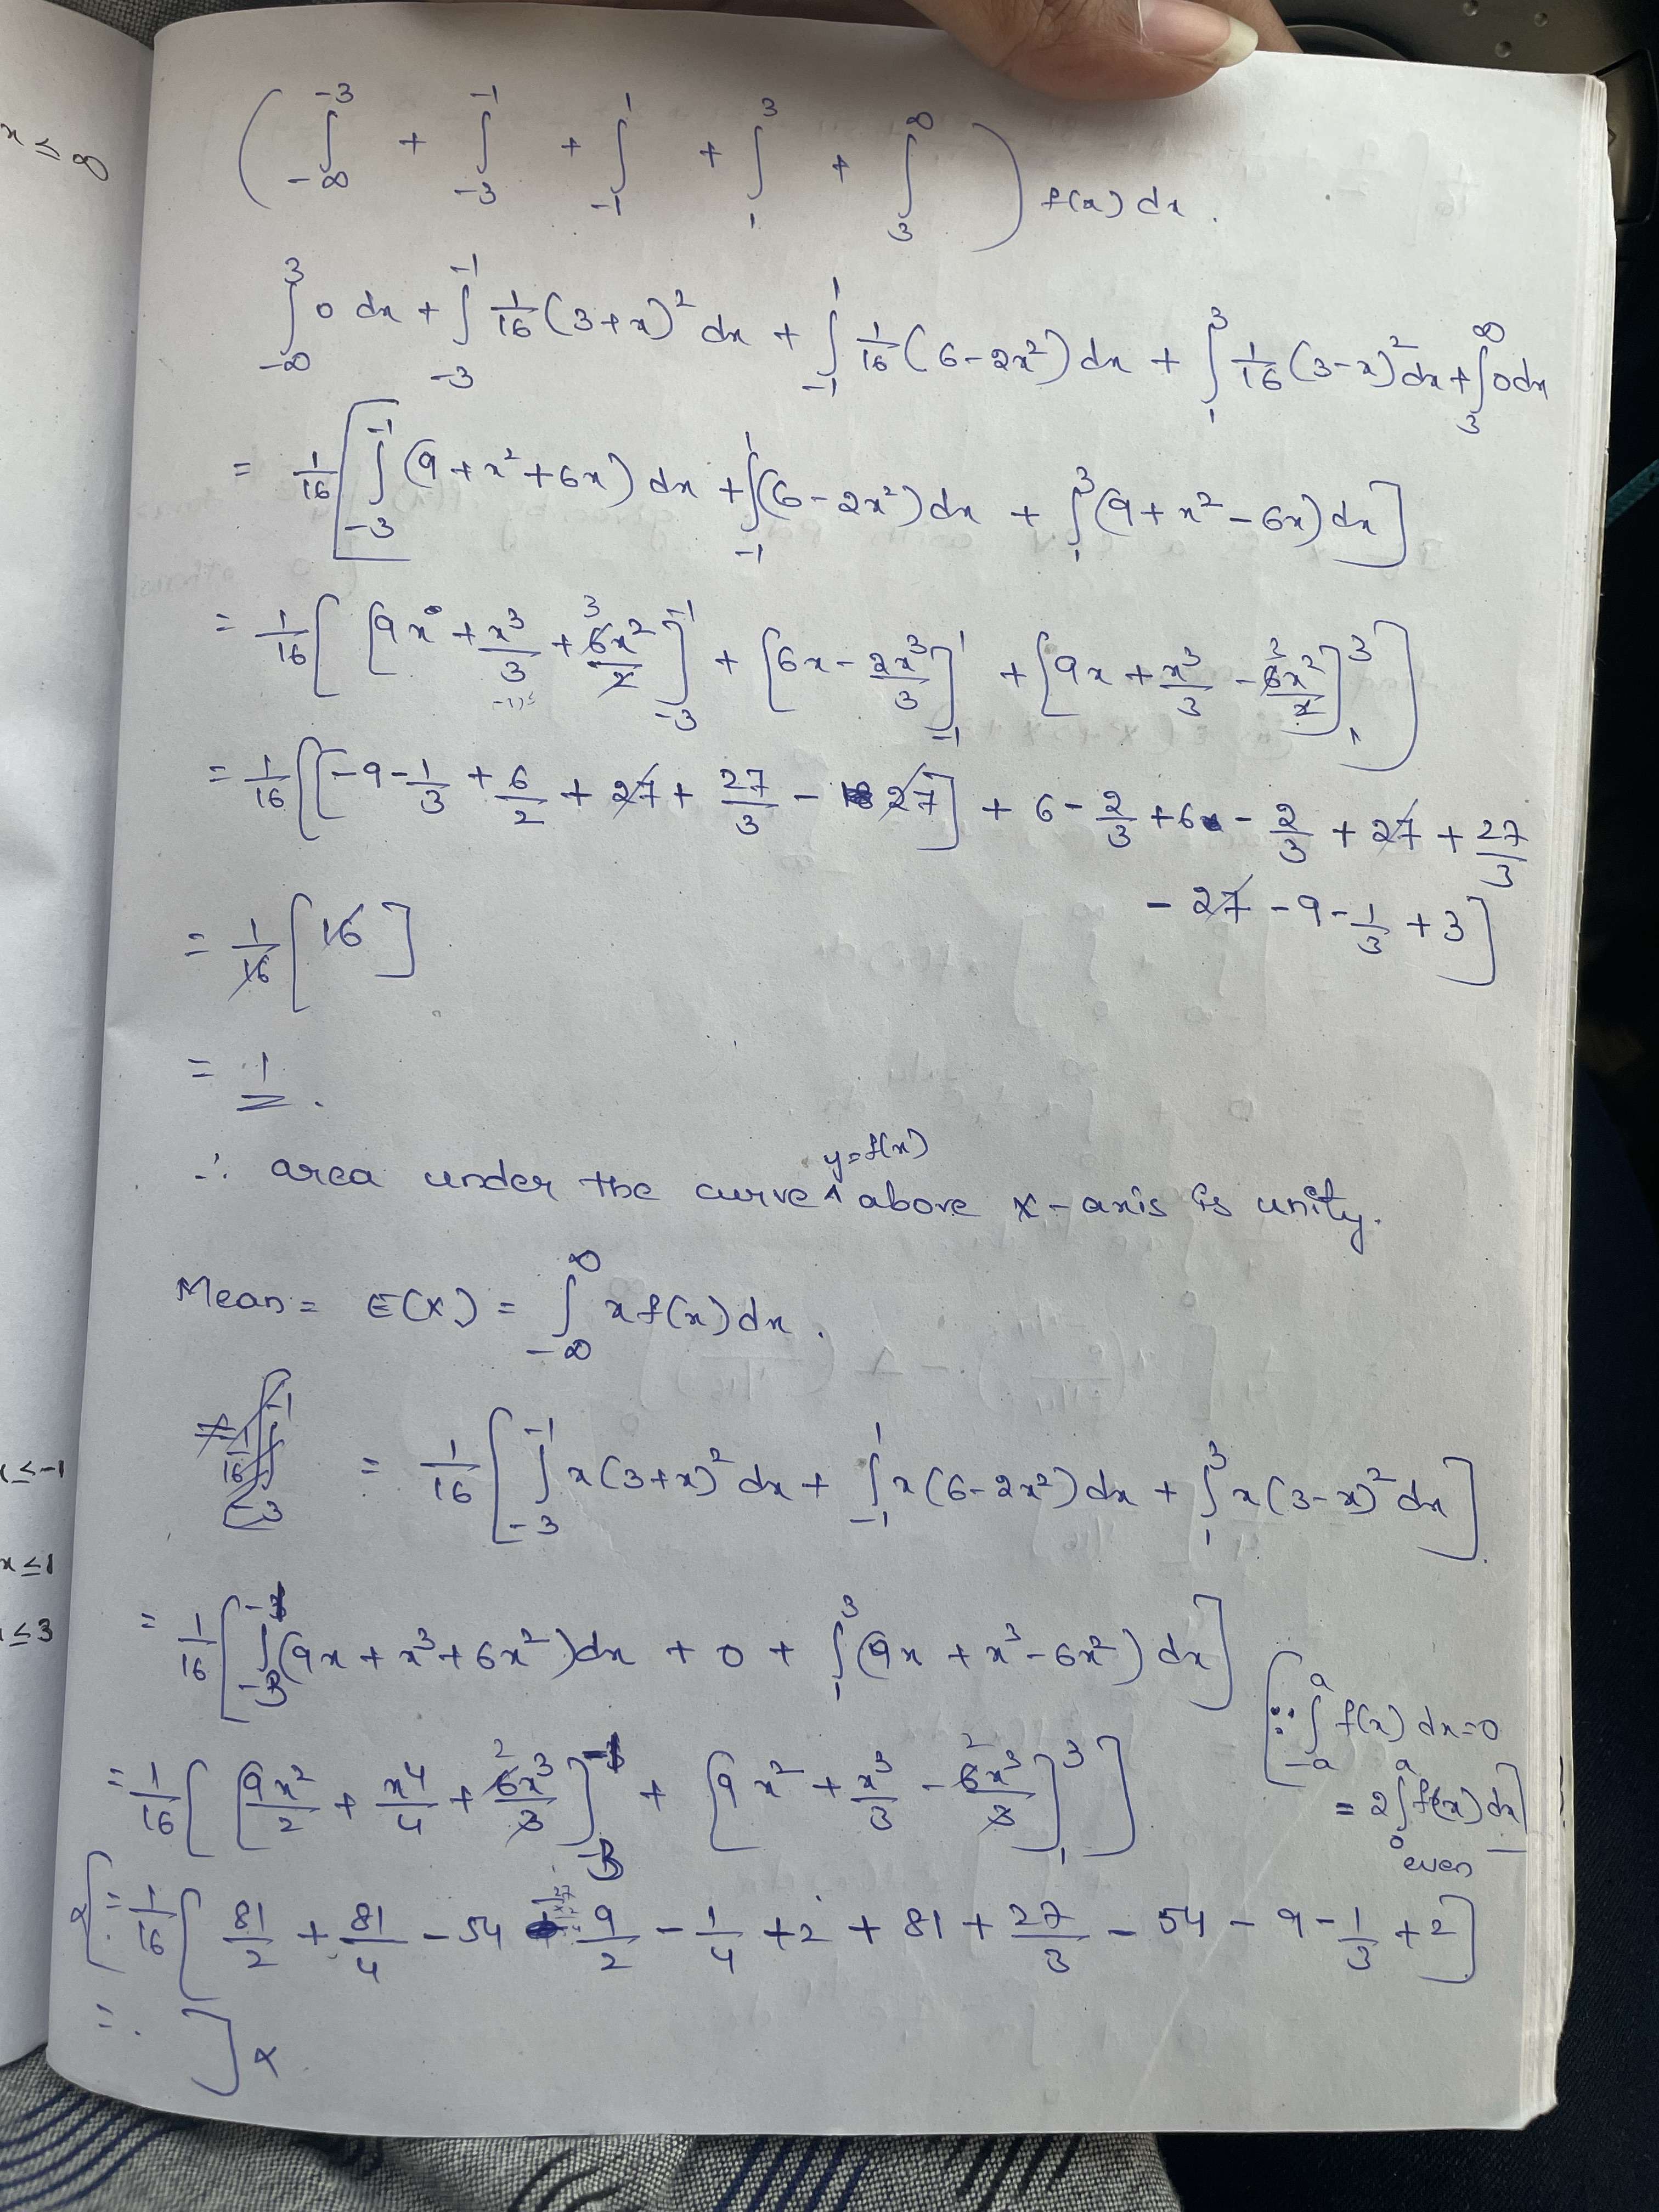 x ≤ ∞
( ∫_{-∞}^{-3} + ∫_{-3}^{-1} + ∫_{-1}^{1} + ∫_{1}^{3} + ∫_{3}^{∞} ) f(x) dx .
∫_{-∞}^{3} 0 dx + ∫_{-3}^{-1} 1/16 (3+x)² dx + ∫_{-1}^{1} 1/16 (6-2x²) dx + ∫_{1}^{3} 1/16 (3-x)² dx + ∫_{3}^{∞} 0 dx
= 1/16 [ ∫_{-3}^{-1} (9 + x² + 6x) dx + ∫_{-1}^{1} (6 - 2x²) dx + ∫_{1}^{3} (9 + x² - 6x) dx ]
= 1/16 [ [9x + x³/3 + 6x²/2]_{-3}^{-1} + [6x - 2x³/3]_{-1}^{1} + [9x + x³/3 - 6x²/2]_{1}^{3} ]
= 1/16 [ [-9 - 1/3 + 6/2 + 27 + 27/3 - 27] + 6 - 2/3 + 6 - 2/3 + 27 + 27/3
- 27 - 9 - 1/3 + 3 ]
= 1/16 [ 16 ]
= 1 .
∴ area under the curve y=f(x) above x-axis is unity.
Mean = E(X) = ∫_{-∞}^{∞} x f(x) dx .
= 1/16 [ ∫_{-3}^{-1} x(3+x)² dx + ∫_{-1}^{1} x(6-2x²) dx + ∫_{1}^{3} x(3-x)² dx ]
x ≤ -1
x ≤ 1
x ≤ 3
= 1/16 [ ∫_{-3}^{-1} (9x + x³ + 6x²) dx + 0 + ∫_{1}^{3} (9x + x³ - 6x²) dx ]
[ ∵ ∫_{-a}^{a} f(x) dx = 0
= 2 ∫_{0}^{a} f(x) dx ]
even
= 1/16 [ [9x²/2 + x⁴/4 + 6x³/3]_{-3}^{-1} + [9x² + x³/3 - 6x³/3]_{1}^{3} ]
= 1/16 [ 81/2 + 81/4 - 54 9/2 - 1/4 + 2 + 81 + 27/3 - 54 - 9 - 1/3 + 2 ]
= . ] x